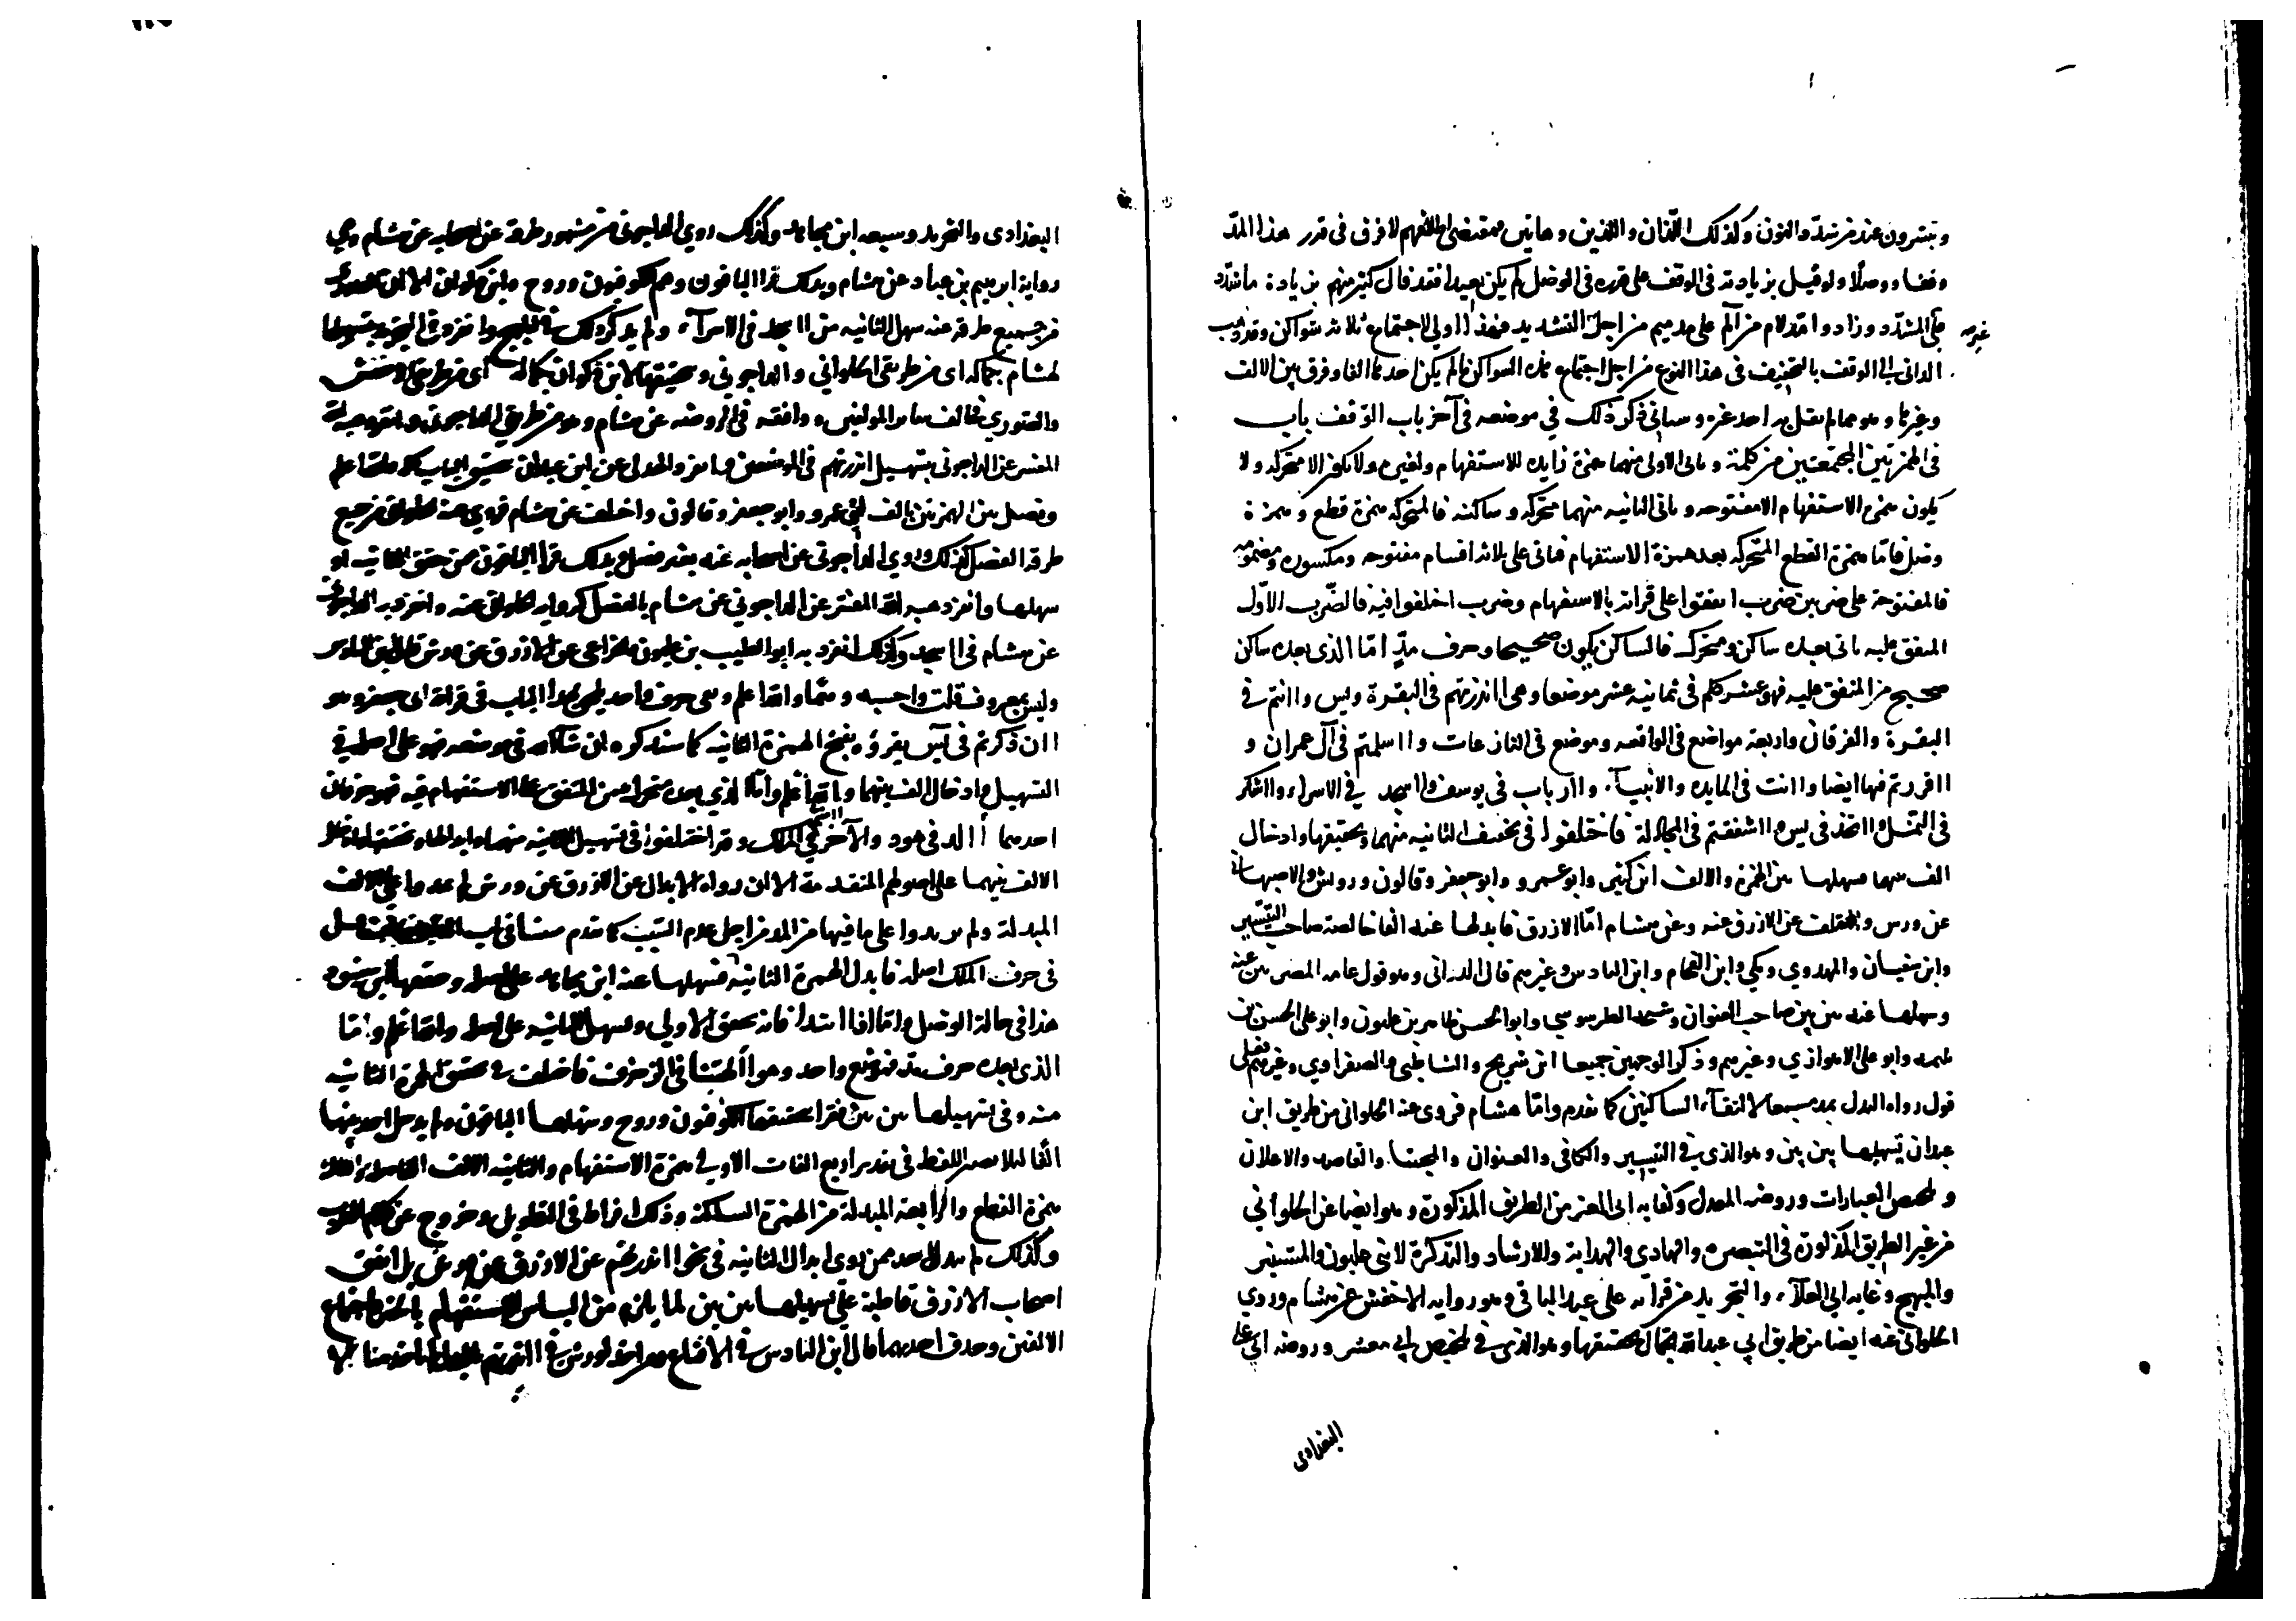 وتبشرون عند من شدد النون وكذلك اللذان واللذين وهاتين فمقتضى اطلاقهم لا فرق في قدر هذا المد
وقفا ووصلا ولو قيل بزيادته في الوقف على قدره في الوصل لم يكن بعيدا فقد قال كثير منهم بزيادة ما شدد
على غير المشدد وزادوا مد لام من الم على مد ميم من اجل التشديد فهذا اولى لاجتماع ثلاثة سواكن وقد ذهب
الداني الى الوقف بالتخفيف في هذا النوع من اجل اجتماع هذه السواكن ما لم يكن احدها الفا وفرق بين الالف
وغيرها وهو مما لم يقل به احد غيره وسياتي ذكر ذلك في موضعه في آخر باب الوقف باب
في الهمزتين المجتمعتين من كلمة وتاتي الاولى منهما همزة زايدة للاستفهام ولغيره ولا تكون الا متحركة ولا
تكون همزة الاستفهام الا مفتوحه وتاتي الثانيه منهما متحركه وساكنه فالمتحركه همزة قطع وهمزة
وصل فاما همزة القطع المتحركه بعد همزة الاستفهام فتاتي على ثلاثة اقسام مفتوحه ومكسوره ومضمومه
فالمفتوحة على ضربين ضرب اتفقوا على قراته بالاستفهام وضرب اختلفوا فيه فالضرب الاول
المتفق عليه ياتي بعده ساكن ومتحرك فالساكن يكون صحيحا وحرف مد اما الذي بعده ساكن
صحيح من المتفق عليه فهو عشر كلم في ثمانية عشر موضعا وهي اانذرتهم في البقرة ويس واانتم في
البقرة والفرقان واربعة مواضع في الواقعه وموضع في النازعات وااسلمتم في آل عمران و
ااقررتم فيها ايضا واانت في المايده والانبيآء واارباب في يوسف وااسجد في الاسراء وااشكر
في النمل وااتخذ في يس وااشفقتم في المجادلة فاختلفوا في تخفيف الثانيه منهما وتحقيقها وادخال
الف بينهما فسهلها بين الهمزة والالف ابن كثير وابو عمرو وابو جعفر وقالون ورويس والاصبهاني
عن ورش واختلف عن الازرق عنه وعن هشام اما الازرق فابدلها عنه الفا خالصة صاحب التيسير
وابن سفيان والمهدوي ومكي وابن الفحام وابن الباذش وغيرهم قال الداني وهو قول عامه المصريين عنه
وسهلها عنه بين بين صاحب العنوان وشيخه الطرسوسي وابو الحسن طاهر بن غلبون وابو علي الحسن بن
بليمه وابو علي الاهوازي وغيرهم وذكر الوجهين جميعا ابن شريح والشاطبي والصفراوي وغيرهم فعلى
قول رواة البدل يمد مشبعا لالتقآء الساكنين كما تقدم واما هشام فروى عنه الحلواني من طريق ابن
عبدان تسهيلها بين بين وهو الذي في التيسير والكافي والعنوان والمجتبا والقاصد والاعلان
وتلخيص العبارات وروضة المعدل وكفاية ابي العز من الطريق المذكورة وهو ايضا عن الحلواني
من غير الطريق المذكورة في التبصرة والهادي والهداية والارشاد والتذكرة لابن غلبون والمستنير
والمبهج وغاية ابي العلآء والتجريد من قراته على عبد الباقي وهو رواية الاخفش عن هشام وروى
الحلواني عنه ايضا من طريق ابي عبد الله الجمال تحقيقها وهو الذي في تلخيص ابي معشر وروضة ابي علي
البغدادي
البغدادي والتجريد وسبعة ابن مجاهد وكذلك روى الداجوني من مشهور طرقه عن اصحابه عن هشام وهي
رواية ابرهيم بن عباد عن هشام وبذلك قرا الباقون وهم الكوفيون وروح وابن ذكوان الا ان الصوري
من جميع طرقه عنه سهل الثانيه من ااسجد في الاسرآء ولم يذكر ذلك في المبهج وانفرد في التجريد بتسهيلها
لهشام بكماله اي من طريقي الحلواني والداجوني وتحقيقها لابن ذكوان بكماله اي من طريقي الاخفش
والصوري فخالف ساير المولفين ووافقه في الروضه عن هشام وهو من طريق الداجوني وانفرد هبة الله
المفسر عن الداجوني بتسهيل اانذرتهم في الموضعين فيما انفرد الهذلي عن ابن عبدان بتحقيق الباب كله والله اعلم
وفصل بين الهمزتين بالف ابو عمرو وابو جعفر وقالون واختلف عن هشام فروى عنه الحلواني من جميع
طرقه الفصل كذلك وروى الداجوني عن اصحابه عنه بغير فصل وبذلك قرا الباقون ممن حقق الثانية او
سهلها وانفرد هبة الله المفسر عن الداجوني عن هشام بالفصل كرواية الحلواني عنه وانفرد به الداجوني
عن هشام في ااسجد وكذلك انفرد به ابو الطيب بن غلبون والخزاعي عن الازرق عن ورش قال ابن الباذش
وليس بمعروف قلت واحسبه وهما والله اعلم وبقي حرف واحد يلحق بهذا الباب في قراة ابي جعفر وهو
اان ذكرتم في يس يقرؤه بفتح الهمزة الثانيه كما سنذكره ان شآء الله في موضعه فهو على اصله في
التسهيل وادخال الف بينهما والله اعلم واما الذي بعده متحرك من المتفق عليه الاستفهام فيه فهو حرفان
احدهما أالد في هود والآخر ااامنتم في الملك وقد اختلفوا في تسهيل الثانيه منهما وابدالها وتحقيقها وادخال
الالف بينهما على اصولهم المتقدمة الا ان رواة الابدال عن الازرق عن ورش لم يمدوا على الالف
المبدلة ولم يزيدوا على ما فيها من المد من اجل عدم السبب كما تقدم مبينا في باب المد وخالف قنبل
في حرف الملك اصله فابدل الهمزة الثانيه فسهلها عنه ابن مجاهد على اصله وحققها ابن شنبوذ
هذا في حالة الوصل واما اذا ابتدا فانه يحقق الاولى ويسهل الثانيه على اصله والله اعلم واما
الذي بعده حرف مد فموضع واحد وهو أالهتنا في الزخرف فاختلف في تحقيق الهمزة الثانية
منه وفي تسهيلها بين بين فقرا بتحقيقها الكوفيون وروح وسهلها الباقون ولم يدخل احد بينهما
الفا لئلا يصير اللفظ في تقدير اربع الفات الاولى همزة الاستفهام والثانيه الالف الفاصله والثالثة
همزة القطع والرابعة المبدلة من الهمزة الساكنة وذلك افراط في التطويل وخروج عن كلام العرب
وكذلك لم يبدل احد ممن روى ابدال الثانيه في نحو اانذرتهم عن الازرق عن ورش بل اتفق
اصحاب الازرق قاطبة على تسهيلها بين بين لما يلزم من التباس الاستفهام بالخبر باجتماع
الالفين وحذف احديهما قال ابن الباذش في الاقناع ومن اخذ لورش في اانذرتهم بالبدل لم ياخذ هنا الا